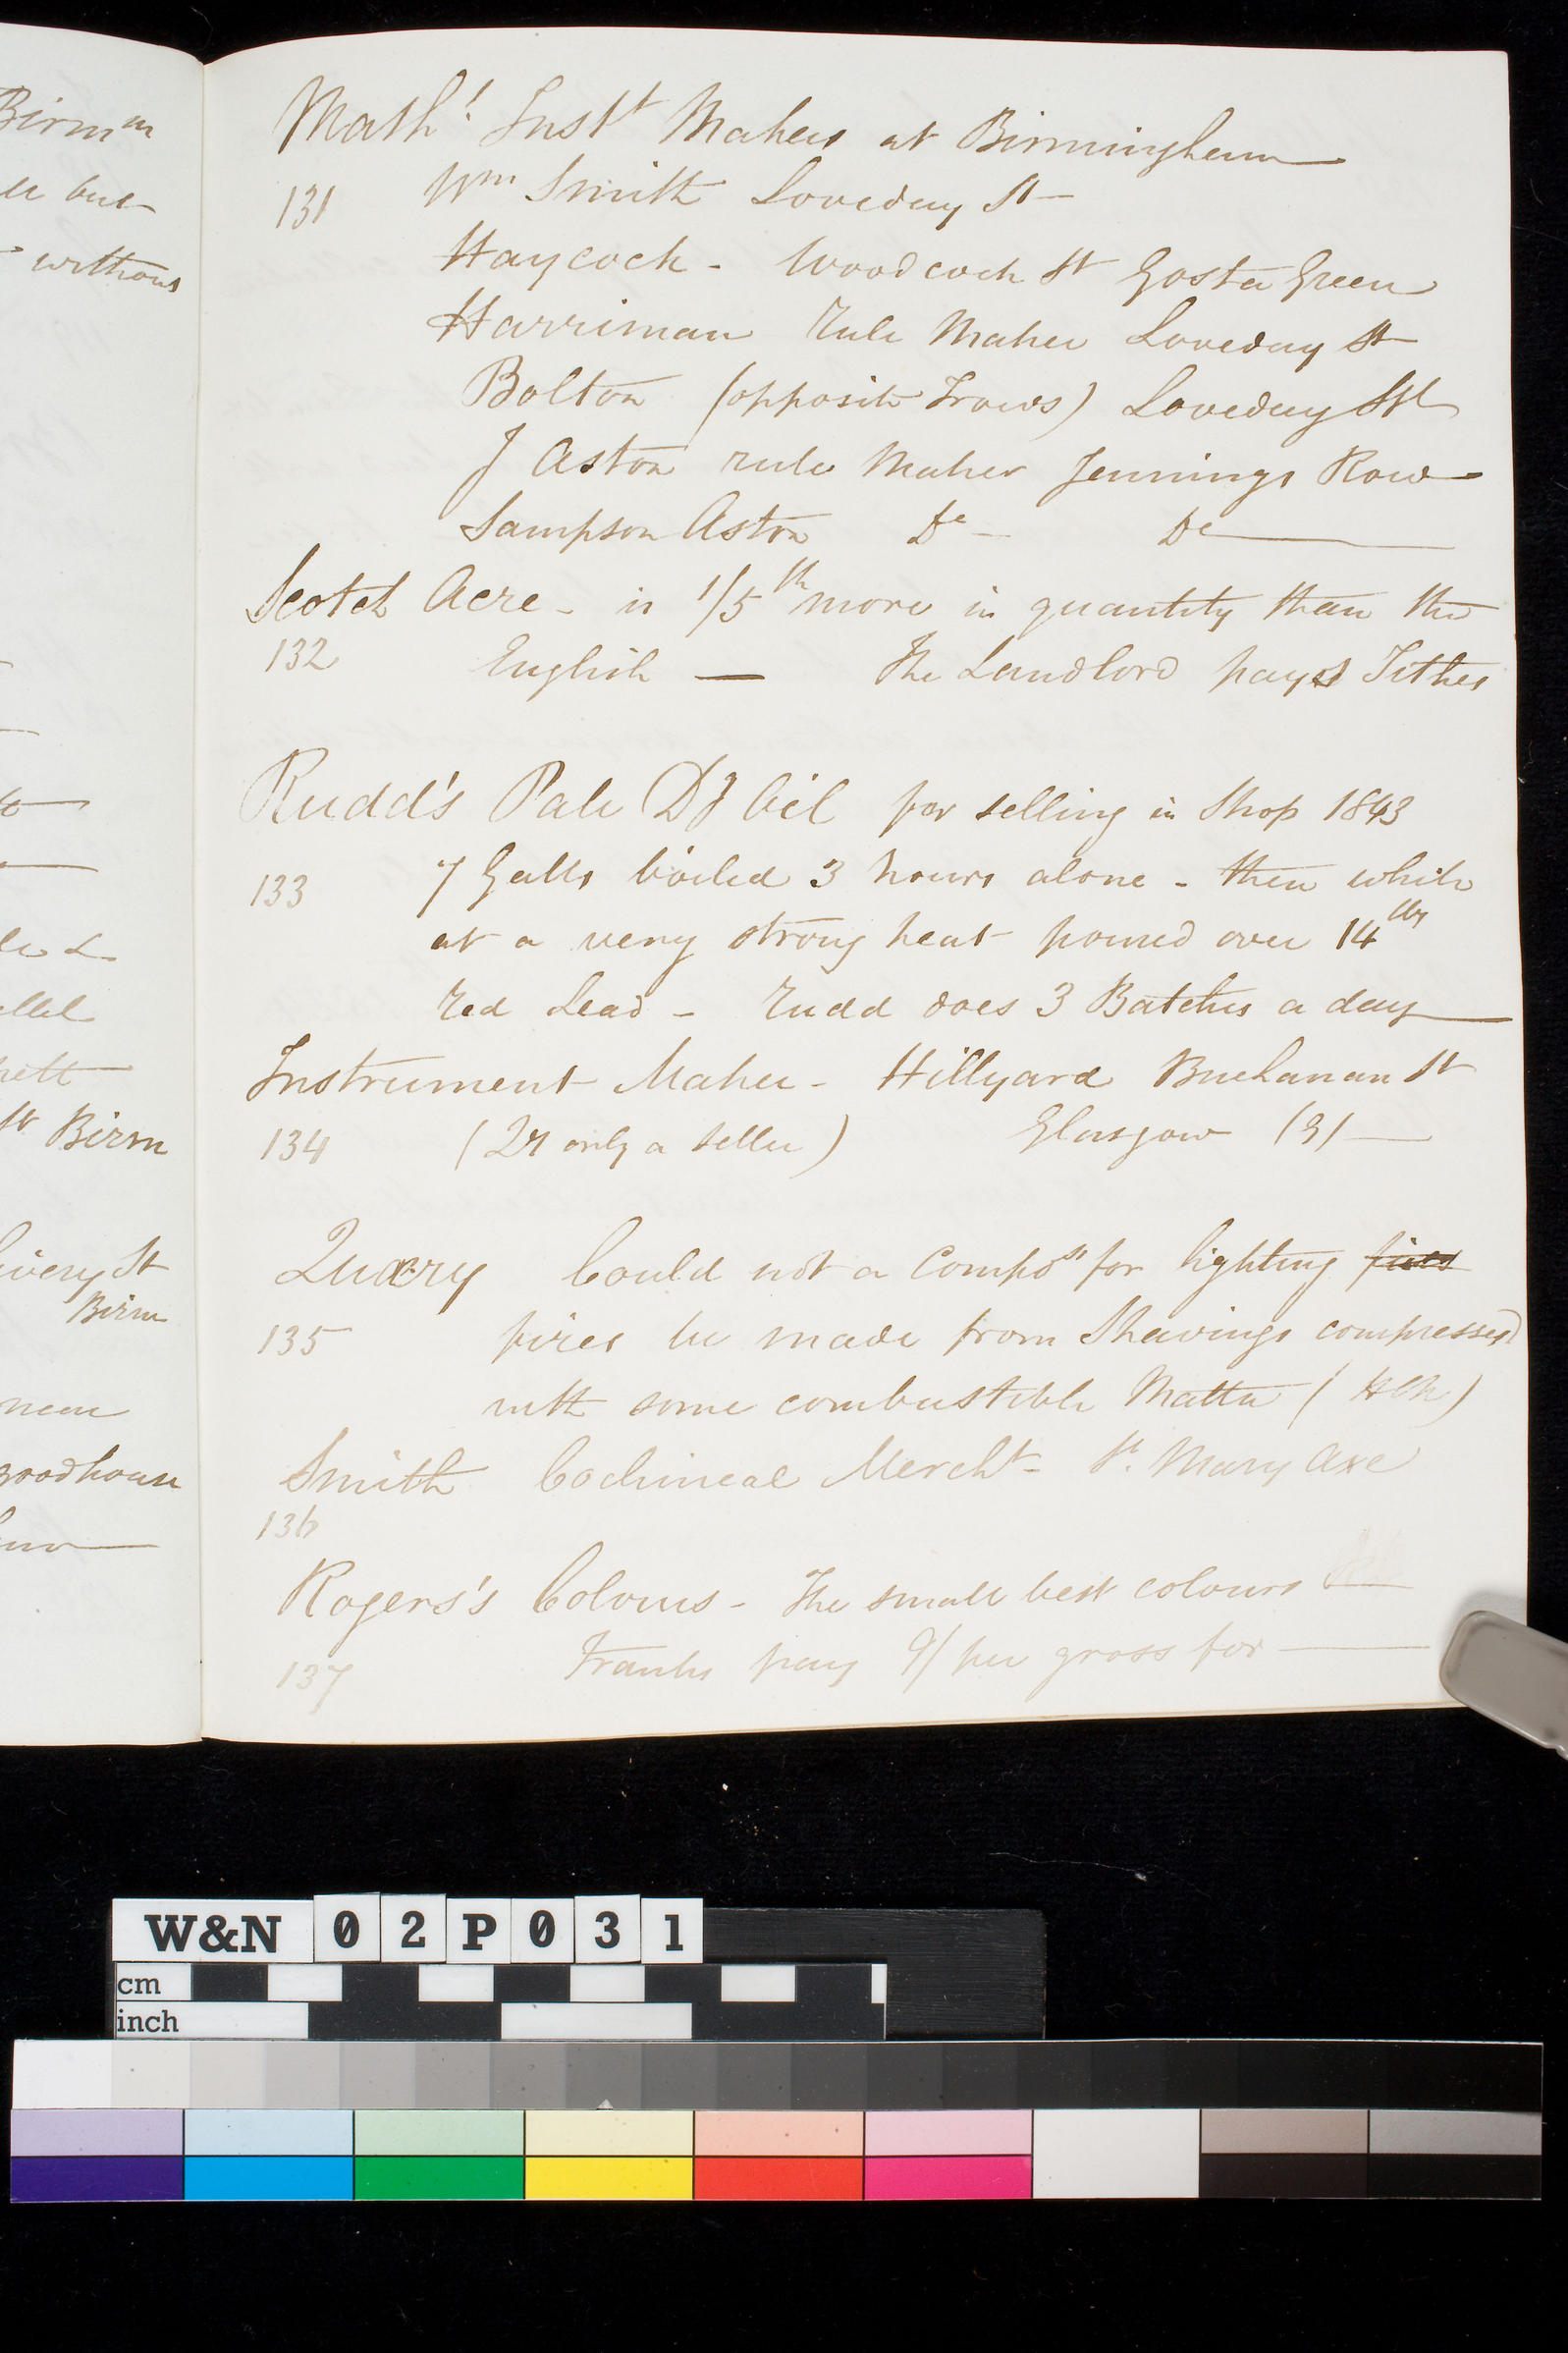 Birmm
but
without
St Birm
St
Birm
near
Mathl Instt Makers at Birmingham
131 Wm Smith Loveday St
Haycock - Woodcock St Gosta Green
Harriman Rule Maker Loveday St
Bolton (opposite Trows) Loveday St
J Aston rule Maker Jennings Row
Sampson Aston Do - Do
Scotch Acre - is 1/5th more in quantity than the
132 English — The Landlord pays Tithes
Rudd's Pale Dg Oil for selling in Shop 1843
133 7 Galls boiled 3 hours alone - then while
at a very strong heat poured over 14 lbs
Red Lead - Rudd does 3 Batches a day
Instrument Maker - Hillyard Buchanan St
134 (Qy only a seller) Glasgow (31
Quary Could not a Composn for lighting fires
135 fires be made from Shavings compressed
with some combustible Matter (
Smith Cochineal Mercht - St. Mary Axe
136
Rogers's Colours - The small best colours
137 Franks pay 9/ per gross for
W&N 02P031
cm
inch